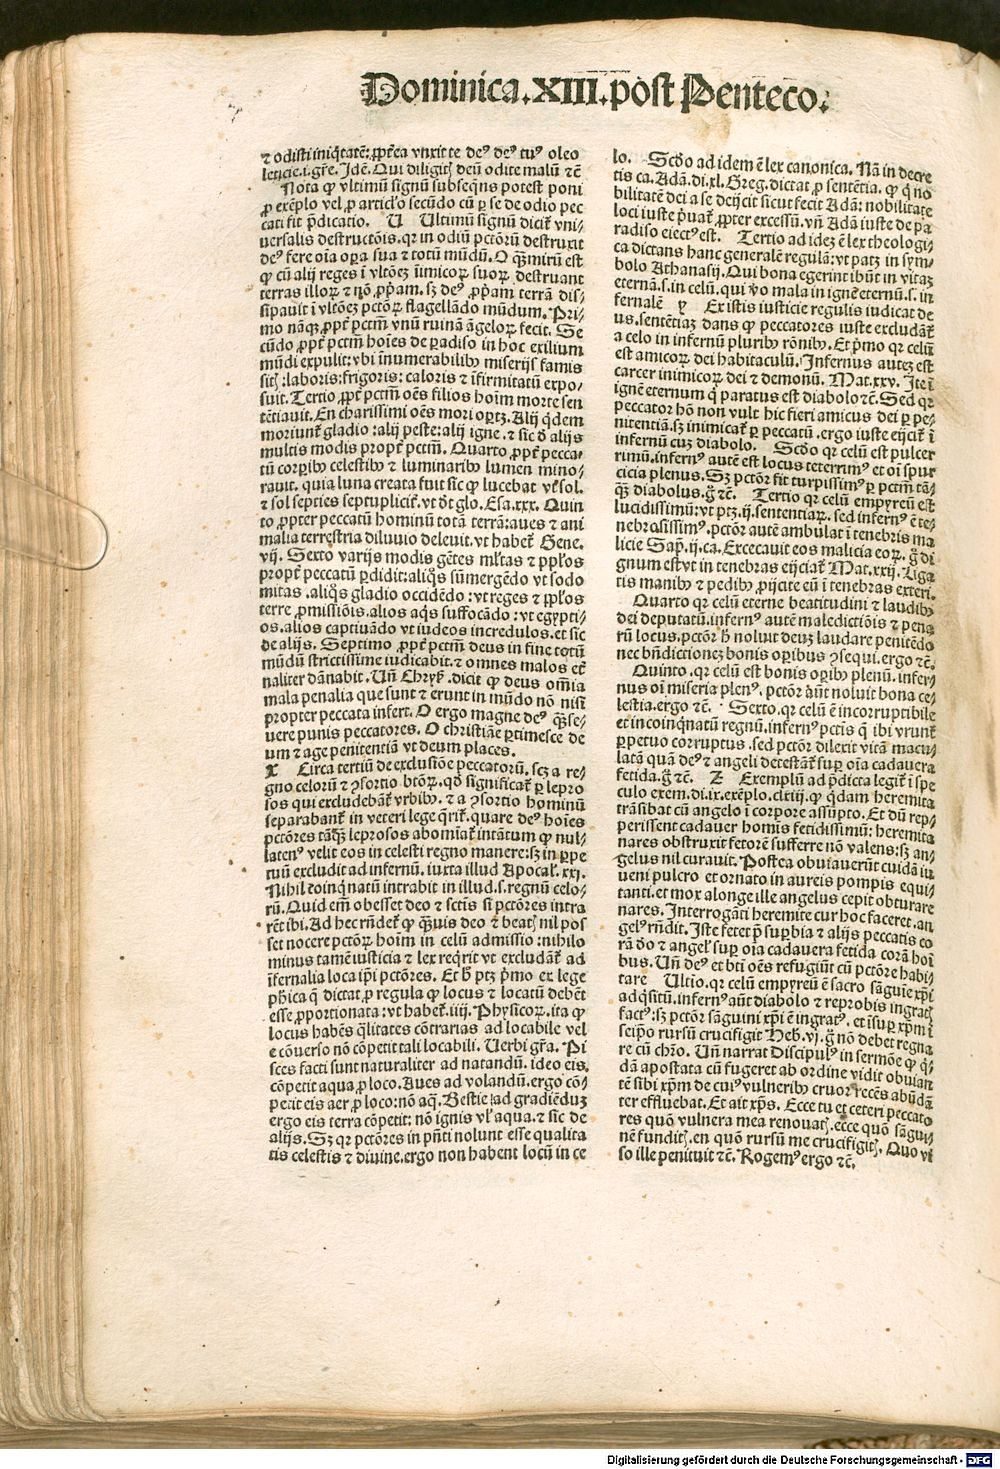 Dominica.XIII.post Penteco.
⁊ odisti iniq̃tatẽ: ꝓpt̃ea vnxit te deꝰ deꝰ tuꝰ oleo
leticie.i.gr̃e. Jdẽ. Qui diligitꝭ deũ odite malũ ⁊c̃
Nota ꝙ vltimũ signũ subseqñs potest poni
ꝓ exẽplo vel ꝓ articl'o secũdo cũ ꝑ se de odio pec
cati fit p̃dicatio. U Ultimũ signũ dicit̃ vni/
uersalis destructõis.qꝛ in odiũ pctõꝝ destruxit
deꝰ fere oĩa oꝑa sua ⁊ totũ mũdũ. O q̃ꝫmirũ est
ꝙ cũ alij reges ĩ vltõeꝫ ĩimicoꝝ suoꝝ destruant
terras illoꝝ ⁊ nõ ꝓpãm. sꝫ deꝰ ꝓpãm terrã dis/
sipauit ĩ vltõeꝫ pctõꝝ flagellãdo mũdum. Pri/
mo nãqꝫ ꝓpt̃ pctm̃ vnũ ruinã ãgeloꝝ fecit. Se
cũdo ꝓpt̃ pctm̃ hoĩes de paradiso in hoc exilium
mũdi expulit: vbi ĩnumerabilibꝰ miserijs famis
sitꝭ: laboris: frigoris: caloris ⁊ ĩfirmitatũ expo/
suit. Tertio ꝓpt̃ pctm̃ oẽs filios hoĩm morte sen
tẽtiauit. En charissimi oẽs mori oꝑtꝫ. Alij q̃dem
moriunt̃ gladio: alij peste: alij igne. ⁊ sic d̓ alijs
multis modis propt̃ pctm̃. Quarto ꝓpt̃ pecca/
tũ corꝑibꝰ celestibꝰ ⁊ luminaribꝰ lumen mino/
rauit. quia luna creata fuit sic ꝙ lucebat vt̓ sol.
⁊ sol septies septuplicit̃. vt dr̃t glo. Esa.xxx. Quin
to ꝓpter peccatũ hominũ totã terrã: aues ⁊ ani
malia terrestria diluuio deleuit. vt habet̃ Gene.
vij. Sexto varijs modis gẽtes ml̓tas ⁊ pplos
propt̃ peccatũ ꝑdidit: aliq̃s sũmergẽdo vt sodo
mitas .aliq̃s gladio occidẽdo: vt reges ⁊ pplos
terre ꝓmissiõis. alios aq̃s suffocãdo: vt egypti/
os. alios captiuãdo vt iudeos incredulos. et sic
de alijs. Septimo ꝓpt̃ pctm̃ deus in fine totũ
mũdũ strictissime iudicabit. ⁊ omnes malos et̃
naliter dãnabit. Un̄ Chryẜ. dicit ꝙ deus om̃ia
mala penalia que sunt ⁊ erunt in mũdo nõ nisi
propter peccata infert. O ergo magne deꝰ q̃ꝫse/
uere punis peccatores. O christiãe ꝑtimesce de
um ⁊ age penitentiã vt deum places.
X Circa tertiũ de exclusiõe peccatorũ. scꝫ a re/
gno celorũ ⁊ ꝯsortio btõꝝ. qd̓ significat̃ ꝑ lepro
sos qui excludebãt̃ vrbibꝰ. ⁊ a ꝯsortio hominũ
separabant̃ in veteri lege q̃rit̃. quare deꝰ hoĩes
pctõres tãq̃ꝫ leprosos abomiat̃ intãtum ꝙ nul/
latenꝰ velit eos in celesti regno manere: sꝫ in ꝑpe
tuũ excludit ad infernũ. iuxta illud Apocal̓. xxi.
Nihil coinq̃natũ intrabit in illud.s.regnũ celo/
rũ. Quid em̃ obesset deo ⁊ sctis si pctõres intra
rẽt ibi. Ad hec rñdet̃ ꝙ q̃ꝫuis deo ⁊ beatꝭ nil pos
set nocere pctõꝝ hoĩm in celũ admissio: nihilo
minus tamẽ iusticia ⁊ lex req̃rit vt excludãt̃ ad
ĩfernalia loca ip̃i pctõres. Et h̓ ptꝫ p̃mo ex lege
ph̓ica q̃ dictat ꝓ regula ꝙ locus ⁊ locatũ debẽt
esse ꝓportionata: vt habet̃. iiij. Physicoꝝ. ita ꝙ
locus habẽs q̃litates cõtrarias ad locabile vel
e cõuerso nõ cõpetit tali locabili. Uerbi gr̃a. Pi
sces facti sunt naturaliter ad natandũ. ideo eis
cõpetit aqua ꝓ loco. Aues ad volandũ. ergo cõ/
petit eis aer ꝓ loco: nõ aq̃. Bestie ad gradiẽduꝫ
ergo eis terra cõpetit: nõ ignis vl̓ aqua. ⁊ sic de
alijs. Sꝫ qꝛ pctõres in pñti nolunt esse qualita
tis celestis ⁊ diuine. ergo non habent locũ in ce
lo. Scd̓o ad idem ẽ lex canonica. Nã in decre
tis ca. Adã. di.xl. Greg. dictat ꝓ sentẽtia. ꝙ q̃ no
bilitatẽ dei a se deijcit sicut fecit Adã: nobilitate
loci iuste p̃uat̃ ꝓpter excessũ. vñ Adã iuste de pa
radiso eiectꝰ est. Tertio ad ideꝫ ẽ lex theologi/
ca dictans hanc generalẽ regulã: vt patꝫ in sym/
bolo Athanasij. Qui bona egerint ibũt in vitaꝫ
eternã.s. in celũ. qui v̓o mala in ignẽ eternũ.s. in
fernalẽ y Ex istis iusticie regulis iudicat de
us. sententiaꝫ dans ꝙ peccatores iuste excludãt̃
a celo in infernũ pluribꝰ rõnibꝰ. Et p̃mo qꝛ celũ
est amicoꝝ dei habitaculũ. Infernus auteꝫ est
carcer inimicoꝝ dei ⁊ demonũ. Mat. xxv. Jte ĩ
ignẽ eternum q̃ paratus est diabolo ⁊c̃. Sed qꝛ
peccator hõ non vult hic fieri amicus dei ꝑ pe/
nitentiã. sꝫ inimicat̃ ꝑ peccatũ. ergo iuste eijcit̃ ĩ
infernũ cuꝫ diabolo. Scd̓o qꝛ celũ est pulcer
rimũ. infernꝰ autẽ est locus teterrimꝰ et oĩ spur
cicia plenus. Sꝫ pctõr fit turpissimꝰ ꝑ pctm̃ tã/
q̃ꝫ diabolus. g̊ ⁊c̃. Tertio qꝛ celũ empyreũ est
lucidissimũ: vt ptꝫ. ij. sententiaꝝ. sed infernꝰ ẽ te/
nebrosissimꝰ. pctõr autẽ ambulat ĩ tenebris ma
licie Sap̃. ij. ca. Excecauit eos malicia eoꝝ. g̊ di
gnum est vt in tenebras eijciat̃ Mat. xxij. Liga
tis manibꝰ ⁊ pedibꝰ ꝓijcite eũ ĩ tenebras exteri.
Quarto qꝛ celũ eterne beatitudini ⁊ laudibꝰ
dei deputatũ. infernꝰ autẽ maledictiõis ⁊ pena
rũ locus. pctõr h̓ noluit deuꝫ laudare penitẽdo
nec bñdictionez bonis oꝑibus ꝯsequi. ergo ⁊c̃.
Quinto. qꝛ celũ est bonis oꝑibꝰ plenũ. infer/
nus oĩ miseria plenꝰ. pctõr aũt noluit bona ce/
lestia. ergo ⁊c̃. Sexto. qꝛ celũ ẽ incorruptibile
et incoinq̃natũ regnũ. infernꝰ pctis q̃ ibi vrunt̃
ꝑpetuo corruptus. sed pctõr dilexit vitã macu/
latã quã deꝰ ⁊ angeli detestãt̃ suꝑ oĩa cadauera
fetida. g̊ ⁊c̃. Z Exemplũ ad p̃dicta legit̃ ĩ spe
culo exem. di. ix. exẽplo. clxiij. ꝙ q̃dam heremita
trãsibat cũ angelo ĩ corpore assũpto. Et dũ rep/
perissent cadauer homĩs fetidissimũ: heremita
nares obstruxit fetorẽ sufferre nõ valens: sꝫ an/
gelus nil curauit. Postea obuiauerũt cuidã iu
ueni pulcro et ornato in aureis pompis equi/
tanti. et mox alonge ille angelus cepit obturare
nares. Interrogãti heremite cur hoc faceret. an
gelꝰ rñdit. Jste fetet p̃ suꝑbia ⁊ alijs peccatis co
rã d̓o ⁊ angel̓ suꝑ oĩa cadauera fetida corã hoĩ
bus. Uñ deꝰ et bti oẽs refugiũt cũ pctõre habi/
tare Ultĩo. qꝛ celũ empyreũ ẽ sacro sãguie xp̃i
adq̃sitũ. infernꝰ aũt diabolo ⁊ reprobis ingratꝭ
factꝰ: sꝫ pctõr sãguini xp̃i ẽ ingratꝰ. et ĩsuꝑ xp̃m ĩ
seip̃o rursũ crucifigit Heb̓. vj. g̊ nõ debet regna
re cũ chr̃o. Uñ narrat Discipulꝰ in sermõe ꝙ q̃/
dã apostata cũ fugeret ab ordine vidit obuian
tẽ sibi xp̃m de cuiꝰ vulneribꝰ cruor recẽs abũdã
ter effluebat. Et ait xp̃s. Ecce tu et ceteri peccato
res quõ vulnera mea renouatꝭ. ecce quõ sãgui/
nẽ funditꝭ. en quõ rursũ me crucifigitꝭ. Quo vi
so ille penituit ⁊c̃. Rogemꝰ ergo ⁊c̃.
Digitalisierung gefördert durch die Deutsche Forschungsgemeinschaft - DFG